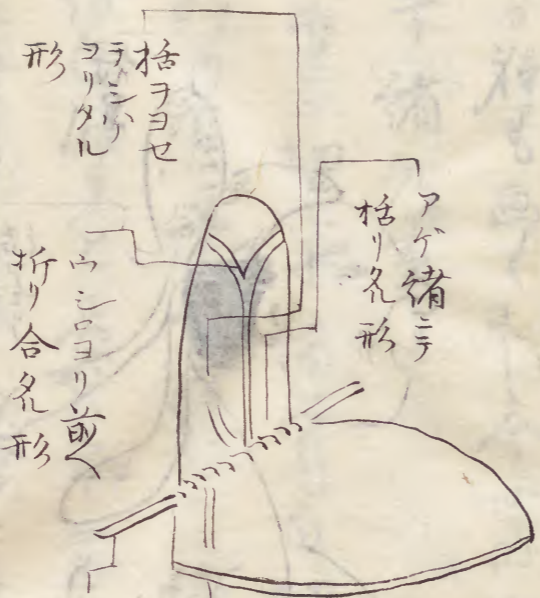 アゲ緒ニテ
括リタル形
括ヲヨセ
テシハ
ヨリタル
形
ウシロヨリ前ヘ
折リ合タル形